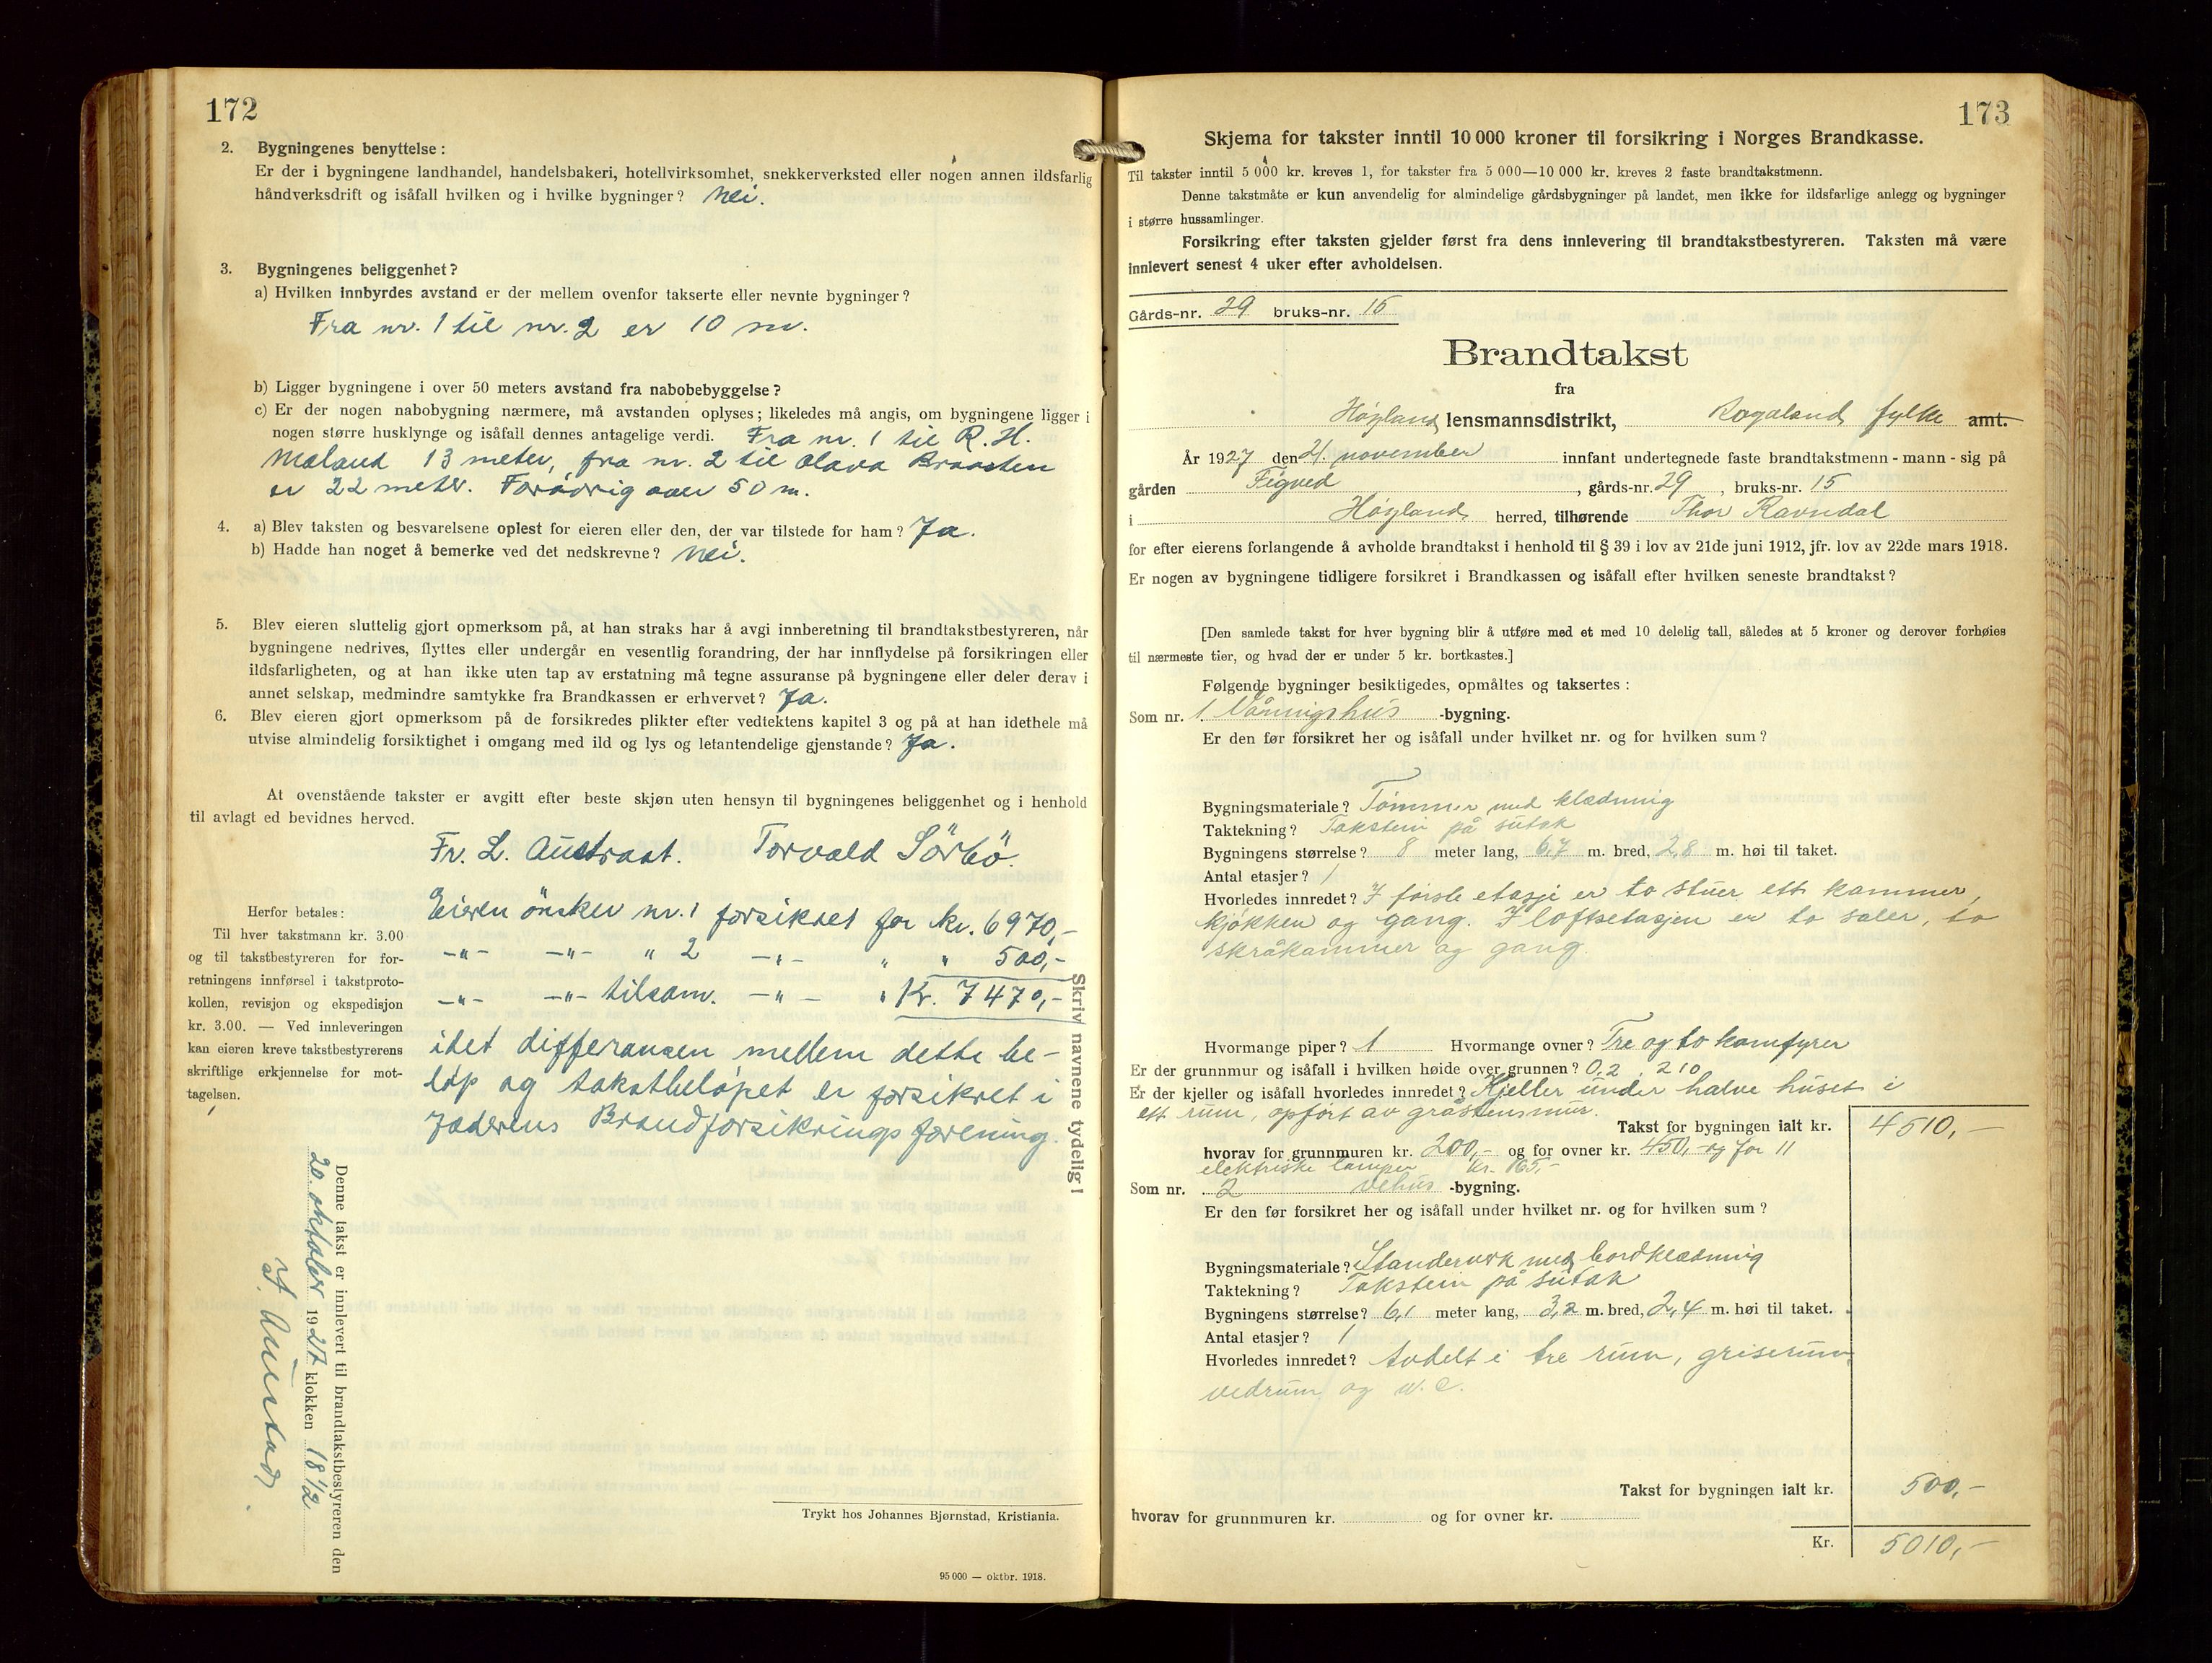 172
2. Bygningenes benyttelse:
Er der i bygningene landhandel, handelsbakeri, hotellvirksomhet, snekkerverksted eller nogen annen ildsfarlig
håndverksdrift og isåfall hvilken og i hvilke bygninger? Nei.
3. Bygningenes beliggenhet?
a) Hvilken innbyrdes avstand er der mellem ovenfor takserte eller nevnte bygninger?
Fra nr. 1 til nr. 2 er 10 m.
b) Ligger bygningene i over 50 meters avstand fra nabobebyggelse?
c) Er der nogen nabobygning nærmere, må avstanden oplyses; likeledes må angis, om bygningene ligger i
nogen større husklynge og isåfall dennes antagelige verdi. Fra nr. 1 til R. H.
Maland 13 meter, fra nr. 2 til Olava Braasten
er 22 meter. Forövrig over 50 m.
4. a) Blev taksten og besvarelsene oplest for eieren eller den, der var tilstede for ham? Ja.
b) Hadde han noget å bemerke ved det nedskrevne? Nei.
5. Blev eieren sluttelig gjort opmerksom på, at han straks har å avgi innberetning til brandtakstbestyreren, når
bygningene nedrives, flyttes eller undergår en vesentlig forandring, der har innflydelse på forsikringen eller
ildsfarligheten, og at han ikke uten tap av erstatning må tegne assuranse på bygningene eller deler derav i
annet selskap, medmindre samtykke fra Brandkassen er erhvervet? Ja.
6. Blev eieren gjort opmerksom på de forsikredes plikter efter vedtektens kapitel 3 og på at han idethele må
utvise almindelig forsiktighet i omgang med ild og lys og letantendelige gjenstande? Ja.
At ovenstående takster er avgitt efter beste skjøn uten hensyn til bygningenes beliggenhet og i henhold
til avlagt ed bevidnes herved.
Fr. L. Austraat. Torvald Sörbö.
Eieren önsker nr. 1 forsikret for kr. 6970,-
-"- -"- " 2 -"- " " 500,-
-"- -"- tilsam. -"- " Kr. 7470,-
idet differansen mellem dette be-
löp og takstbelöpet er forsikret i
Jæderens Brandforsikringsforening.
Herfor betales:
Til hver takstmann kr. 3.00
og til takstbestyreren for for-
retningens innførsel i takstproto-
kollen, revisjon og ekspedisjon
kr. 3.00. — Ved innleveringen
kan eieren kreve takstbestyrerens
skriftlige erkjennelse for mot-
tagelsen.
Skriv navnene tydelig!
Denne takst er innlevert til brandtakstbestyreren den
20. oktober 1927 klokken 18 1/2
Trykt hos Johannes Bjørnstad, Kristiania.
95 000 — oktbr. 1918.
173
Skjema for takster inntil 10 000 kroner til forsikring i Norges Brandkasse.
Til takster inntil 5 000 kr. kreves 1, for takster fra 5 000—10 000 kr. kreves 2 faste brandtakstmenn.
Denne takstmåte er kun anvendelig for almindelige gårdsbygninger på landet, men ikke for ildsfarlige anlegg og bygninger
i større hussamlinger.
Forsikring efter taksten gjelder først fra dens innlevering til brandtakstbestyreren. Taksten må være
innlevert senest 4 uker efter avholdelsen.
Gårds-nr. 29 bruks-nr. 15
Brandtakst
fra
Høyland lensmannsdistrikt, Rogaland fylke amt.
År 1927 den 21. november innfant undertegnede faste brandtakstmenn - mann - sig på
gården Figved, gårds-nr. 29, bruks-nr. 15
i Høyland herred, tilhørende Thor Ravndal
for efter eierens forlangende å avholde brandtakst i henhold til § 39 i lov av 21de juni 1912, jfr. lov av 22de mars 1918.
Er nogen av bygningene tidligere forsikret i Brandkassen og isåfall efter hvilken seneste brandtakst?
[Den samlede takst for hver bygning blir å utføre med et med 10 delelig tall, således at 5 kroner og derover forhøies
til nærmeste tier, og hvad der er under 5 kr. bortkastes.]
Følgende bygninger besiktigedes, opmåltes og taksertes:
Som nr. 1 Våningshus -bygning.
Er den før forsikret her og isåfall under hvilket nr. og for hvilken sum?
Bygningsmateriale? Tømmer med klædning
Taktekning? Takstein på sutak
Bygningens størrelse? 8 meter lang, 6,7 m. bred, 2,8 m. høi til taket.
Antal etasjer? 1
Hvorledes innredet? I første etasje er to stuer ett kammer,
kjøkken og gang. I loftsetasjen er to saler, to
skråkammer og gang.
Hvormange piper? 1 Hvormange ovner? Tre og to komfyrer
Er der grunnmur og isåfall i hvilken høide over grunnen? 0,2, 2,10
Er der kjeller og isåfall hvorledes innredet? Kjeller under halve huset i
ett rum, opført av gråstensmur.
Takst for bygningen ialt kr. 4510,-
hvorav for grunnmuren kr. 200,- og for ovner kr. 450,- og for 11
elektriske lamper kr. 165,-
Som nr. 2 vehus -bygning.
Er den før forsikret her og isåfall under hvilket nr. og for hvilken sum?
Bygningsmateriale? Standerverk med bordklædning
Taktekning? Takstein på sutak
Bygningens størrelse? 6,1 meter lang, 3,2 m. bred, 2,4 m. høi til taket.
Antal etasjer? 1
Hvorledes innredet? Avdelt i tre rum, griserum,
vedrum og w.c.
Takst for bygningen ialt kr. 500,-
hvorav for grunnmuren kr. og for ovner kr.
Kr. 5010,-